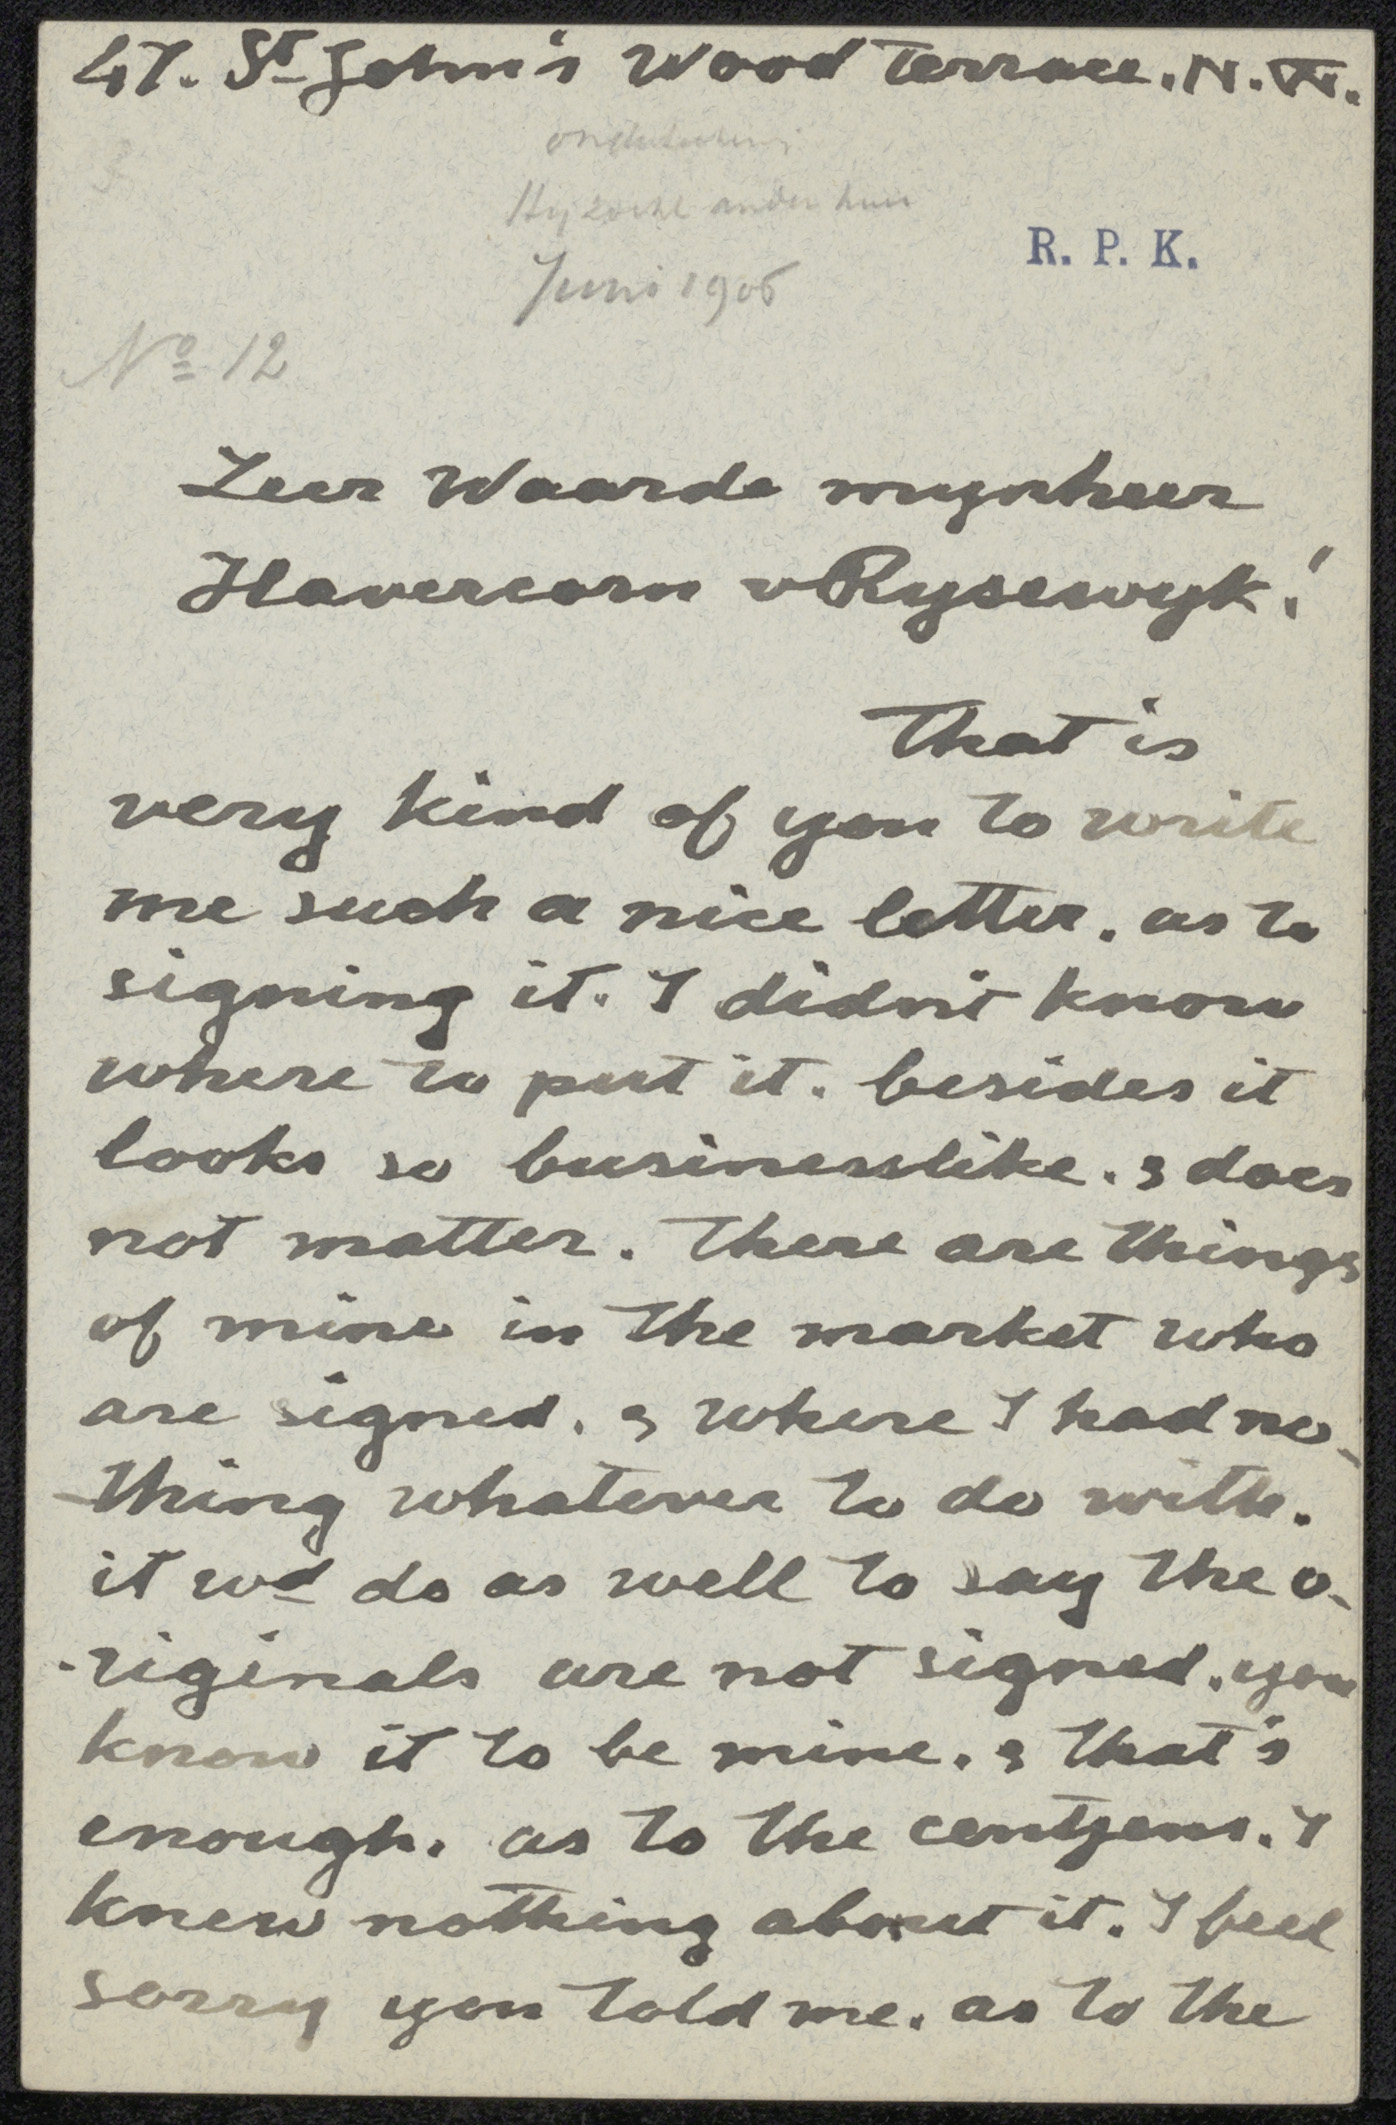 47. St John's Wood Terrace. N.W.
Juni 1906
R. P. K.
No 12
Zeer Waarde mynheer
Havercorn v Rysewyk!
That is
very kind of you to write
me such a nice letter. as to
signing it. I didn't know
where to put it. besides it
looks so businesslike. & does
not matter. There are things
of mine in the market who
are signed. & where I had no-
-thing whatever to do with.
it wd do as well to say the o-
-riginals are not signed. you
know it to be mine. & that's
enough. as to the centjens. I
knew nothing about it. I feel
sorry you told me. as to the